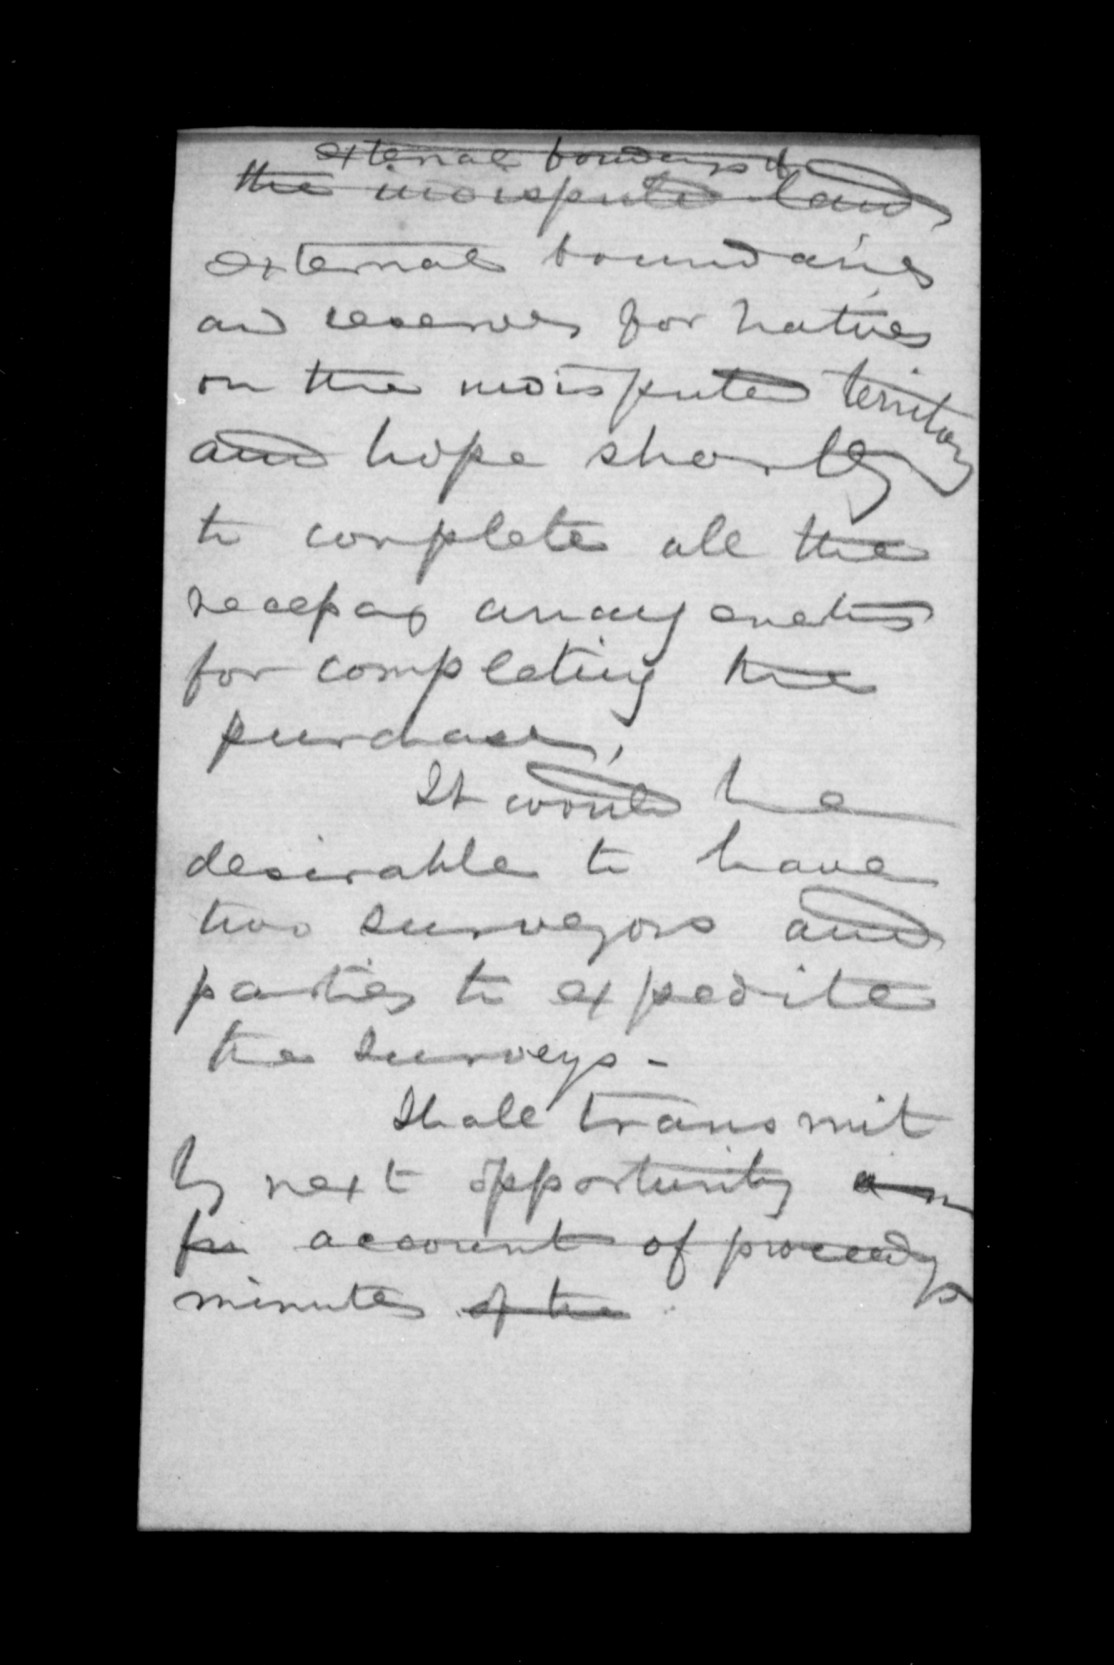 external boundarys of
the undisputed land
external boundaries
and reserves for natives
on the undisputed territory
and hope shortly
to complete all the
necessary arrangements
for completing the
purchase,
It would be
desirable to have
two surveyors and
parties to expedite
the surveys -
Shall transmit
by next opportunity an
account of proceedgs
minutes of the